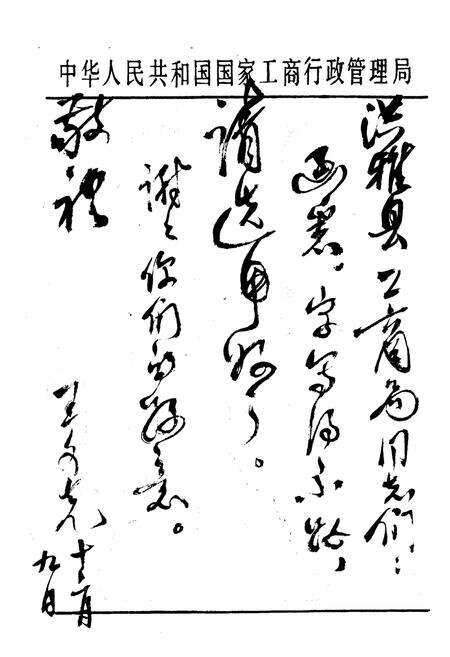 中华人民共和国国家工商行政管理局
洪雅县工商局同志们：
函悉，字写得不好，
请选用好了。
谢谢你们的好意。
敬礼
王文克
十二月
九日